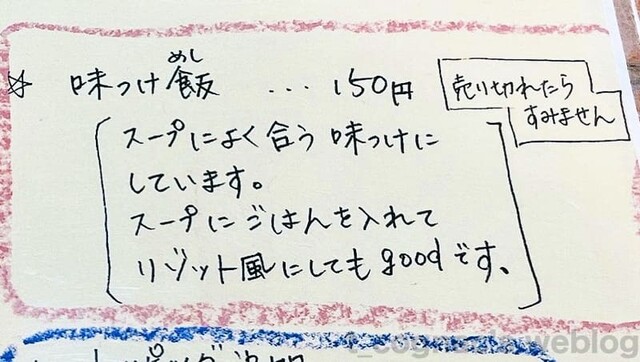 ☆ 味つけ飯 ... 150円
めし
売り切れたら
すみません
スープによく合う味つけに
しています。
スープにごはんを入れて
リゾット風にしてもgoodです。